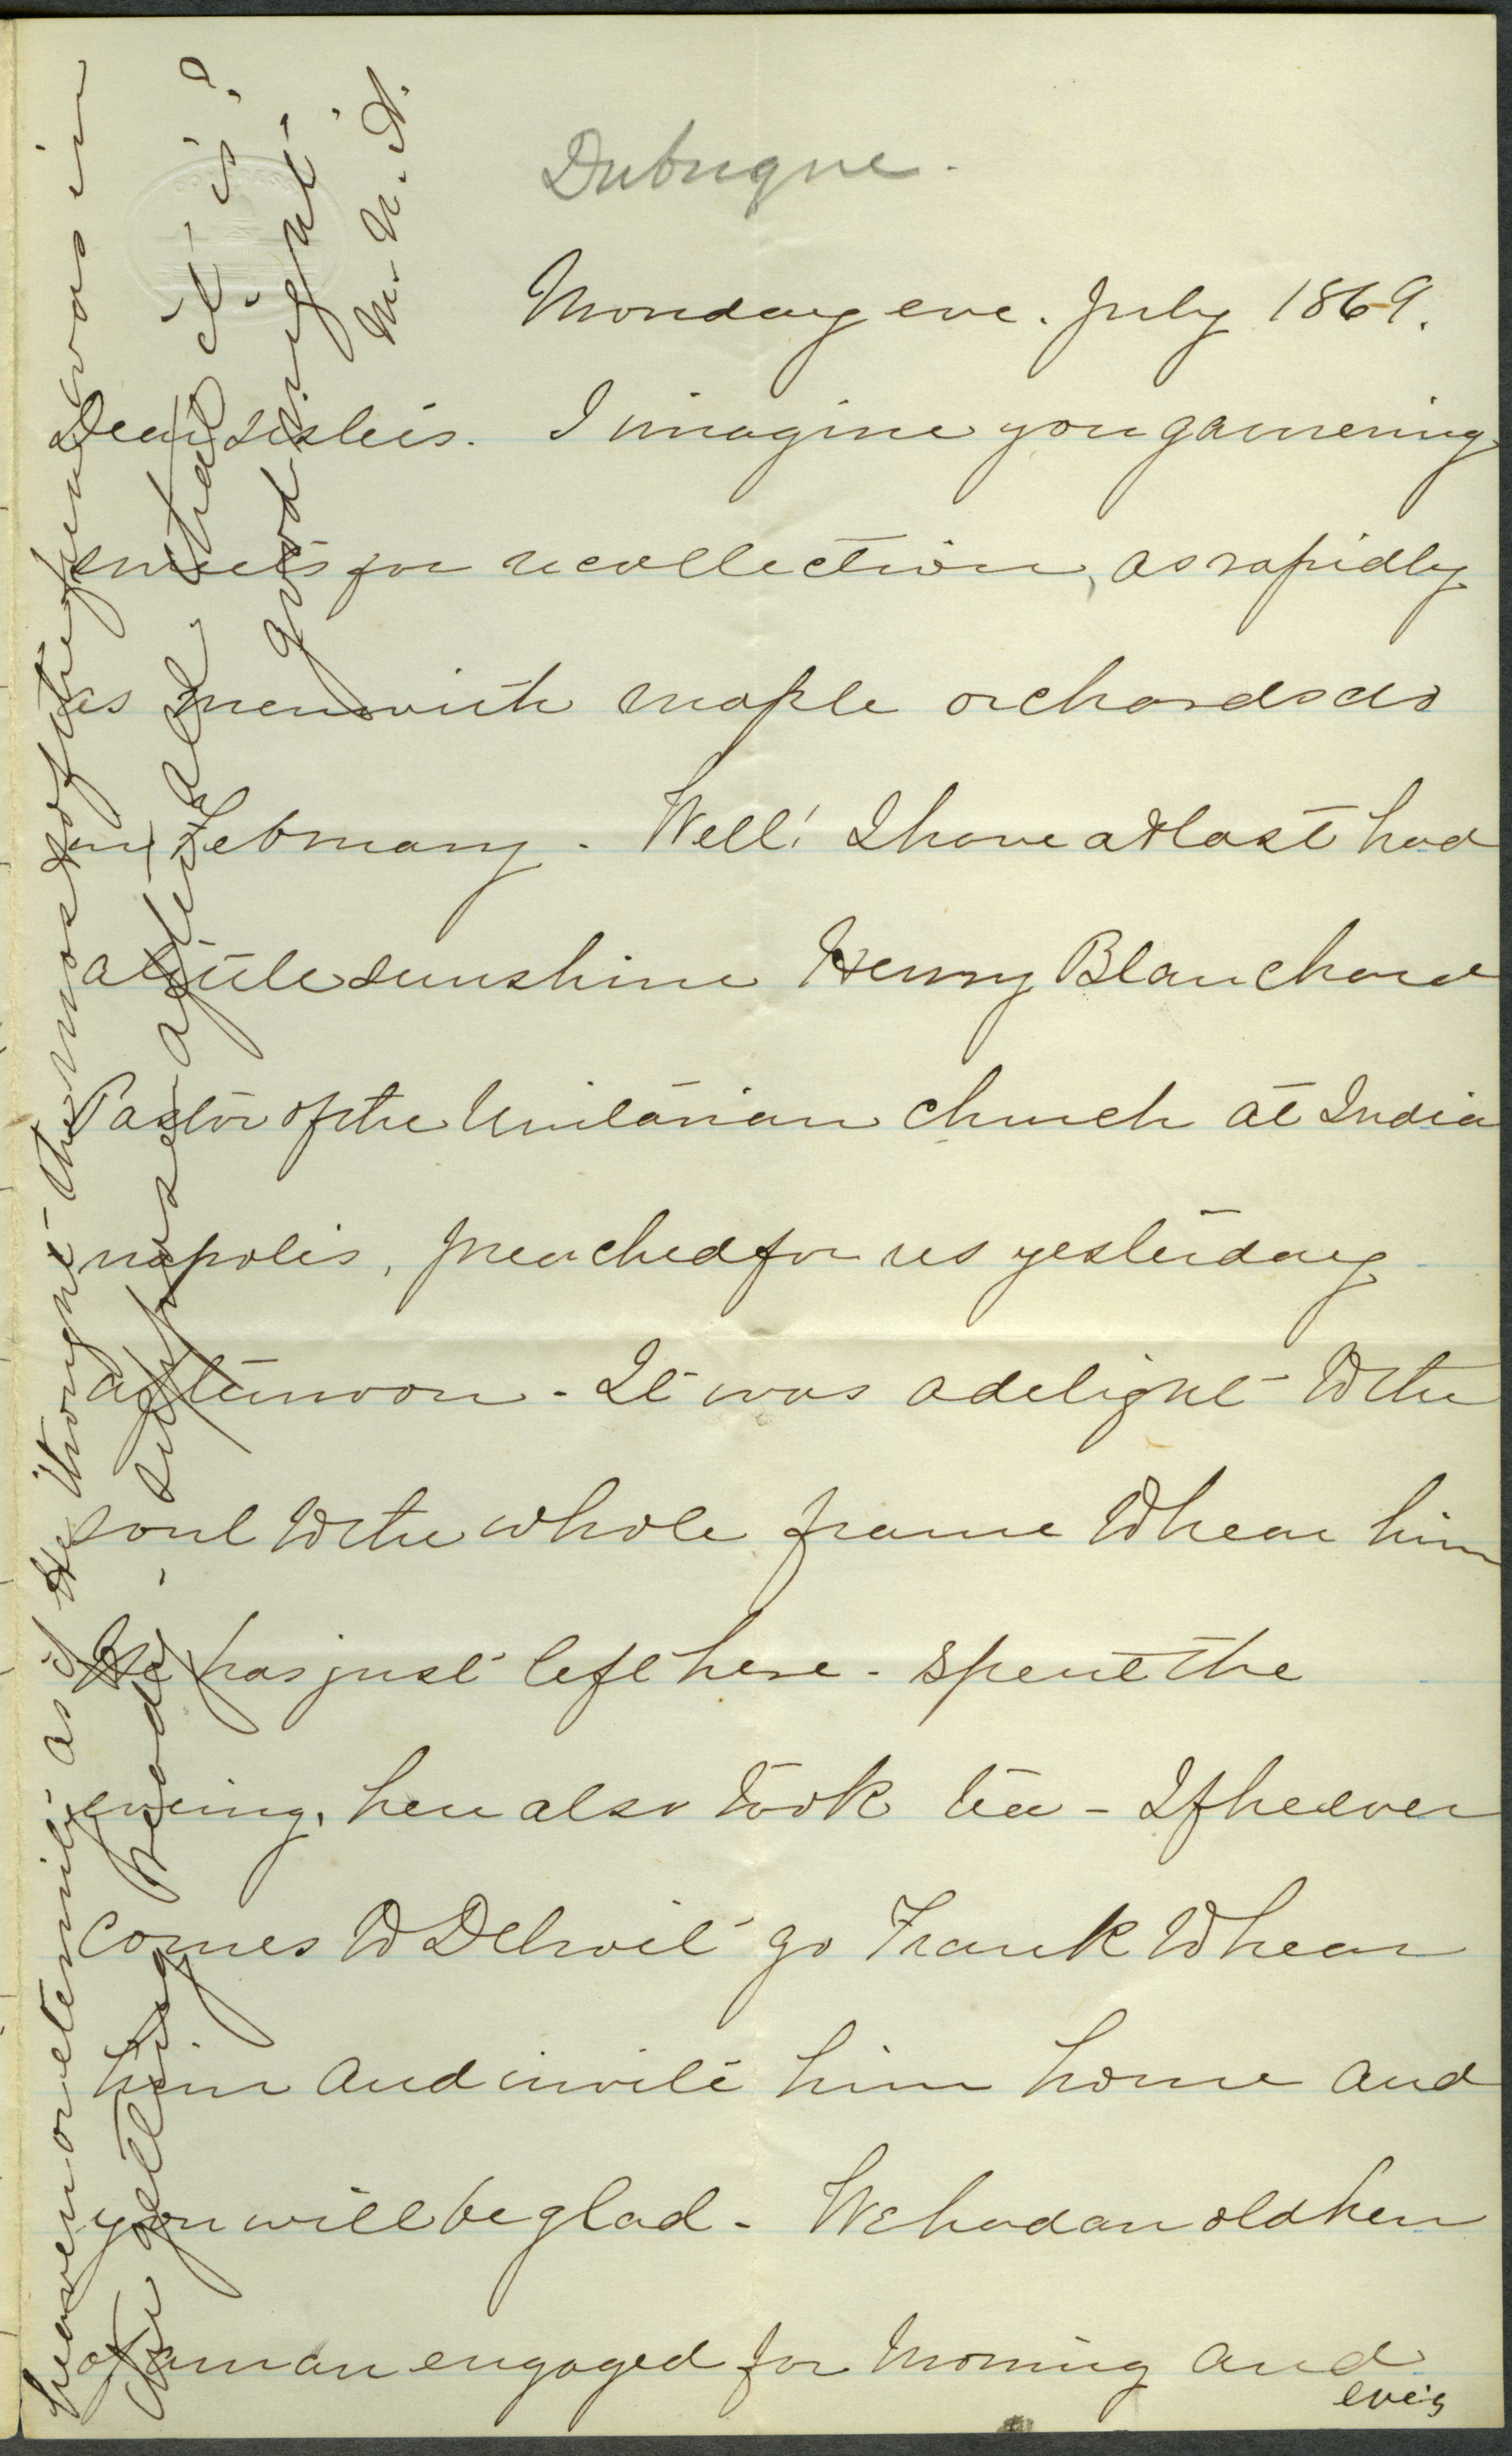 Dubuque.
Monday eve. July 1869.
Dear sisters. I imagine you garnering
sweets for recollection, as rapidly
as men with maple orchards do
in February. Well! I have at last had
a little sunshine Henry Blanchard
Pastor of the Unitarian church at India
napolis, preached for us yesterday
afternoon. It was a delight to the
soul to the whole frame to hear him
He has just left here. spent the
evening, here also took tea - If he ever
comes to Detroit go Frank to hear
him and invite him home and
you will be glad. We had an old hen
of a man engaged for morning and
eve'g
heaven or eternity as if He thought the most of the fun was in
the getting ready. - suppose after all that it is?
good night -
M. N. A.